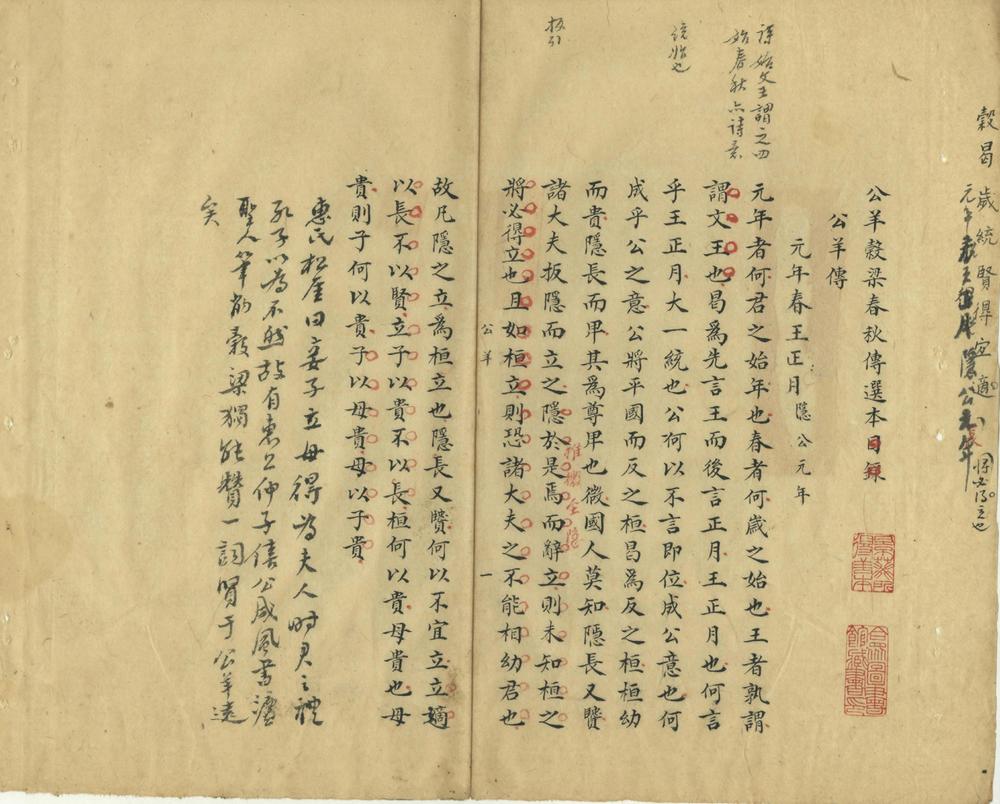 穀曷歲統賢得宜適
公羊穀梁春秋傳選本目錄
公羊傳
元年春王正月隱公元年
元年者何君之始年也春者何歲之始也王者孰謂
謂文王也曷為先言王而後言正月王正月也何言
乎王正月大一統也公何以不言即位成公意也何
成乎公之意公將平國而反之桓曷為反之桓桓幼
而貴隱長而卑其為尊卑也微國人莫知隱長又賢
諸大夫扳隱而立之隱於是焉而辭立則未知桓之
將必得立也且如桓立則恐諸大夫之不能相幼君也
公羊 一
故凡隱之立為桓立也隱長又賢何以不宜立立嫡
以長不以賢立子以貴不以長桓何以貴母貴也母
貴則子何以貴子以母貴母以子貴
惠氏松崖曰妾子立母得為夫人時君之禮
孔子以為不然故有惠公仲子僖公成風書法
聖人筆削穀梁獨能贊一詞賢于公羊遠
矣
始文王謂之四
始春秋亦詩意
統始也
扳引